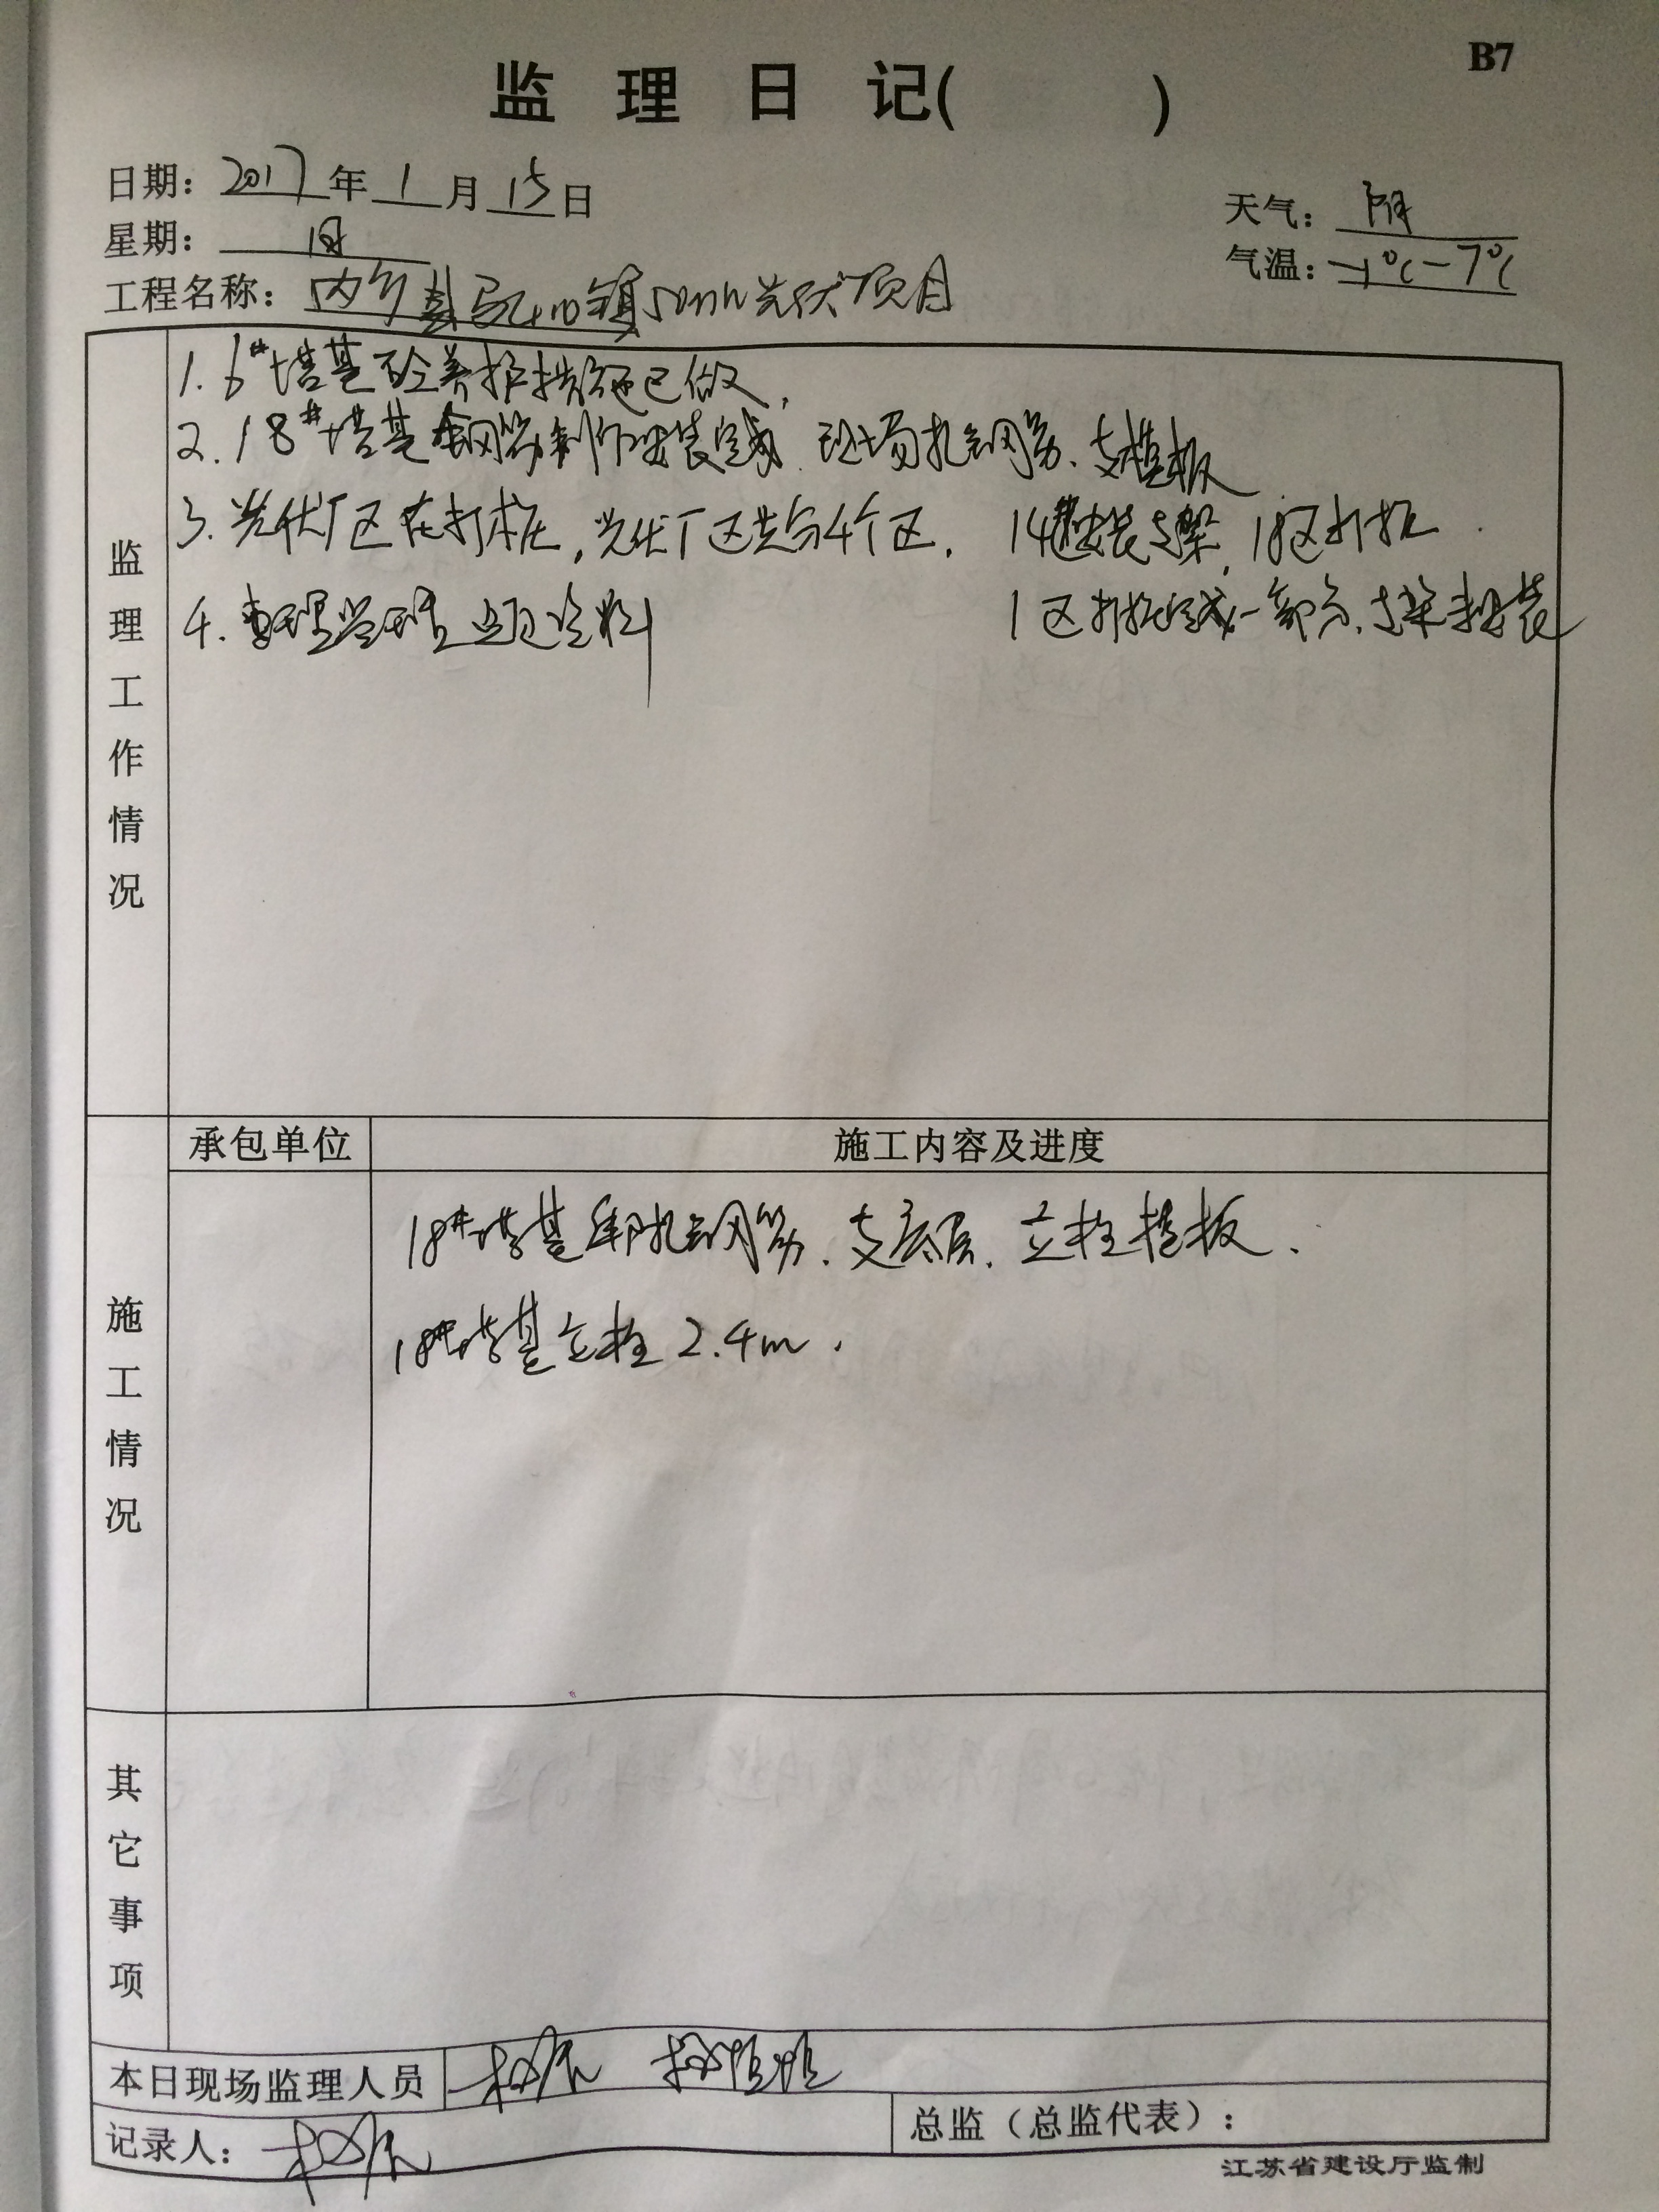 B7
监 理 日 记( )
日期: 2017 年 1 月 15 日
天气: 阴
星期: 日
气温: -1℃-7℃
工程名称: 内乡 马山口镇50mw光伏项目
监理工作情况
1. 6#塔基砼养护措施已做,
2. 18#塔基钢筋制作安装完成. 现场扎钢筋、支模板
3. 光伏厂区在打桩, 光伏厂区共分4个区, 14 安装支架, 18区打桩.
4. 整理监理 资料
1区打桩完成一部分, 支架安装
施工情况
承包单位 施工内容及进度
18#塔基 扎钢筋、支底层、立柱模板.
18#塔基立柱2.4m.
其它事项
本日现场监理人员
记录人:
总监(总监代表):
江苏省建设厅监制